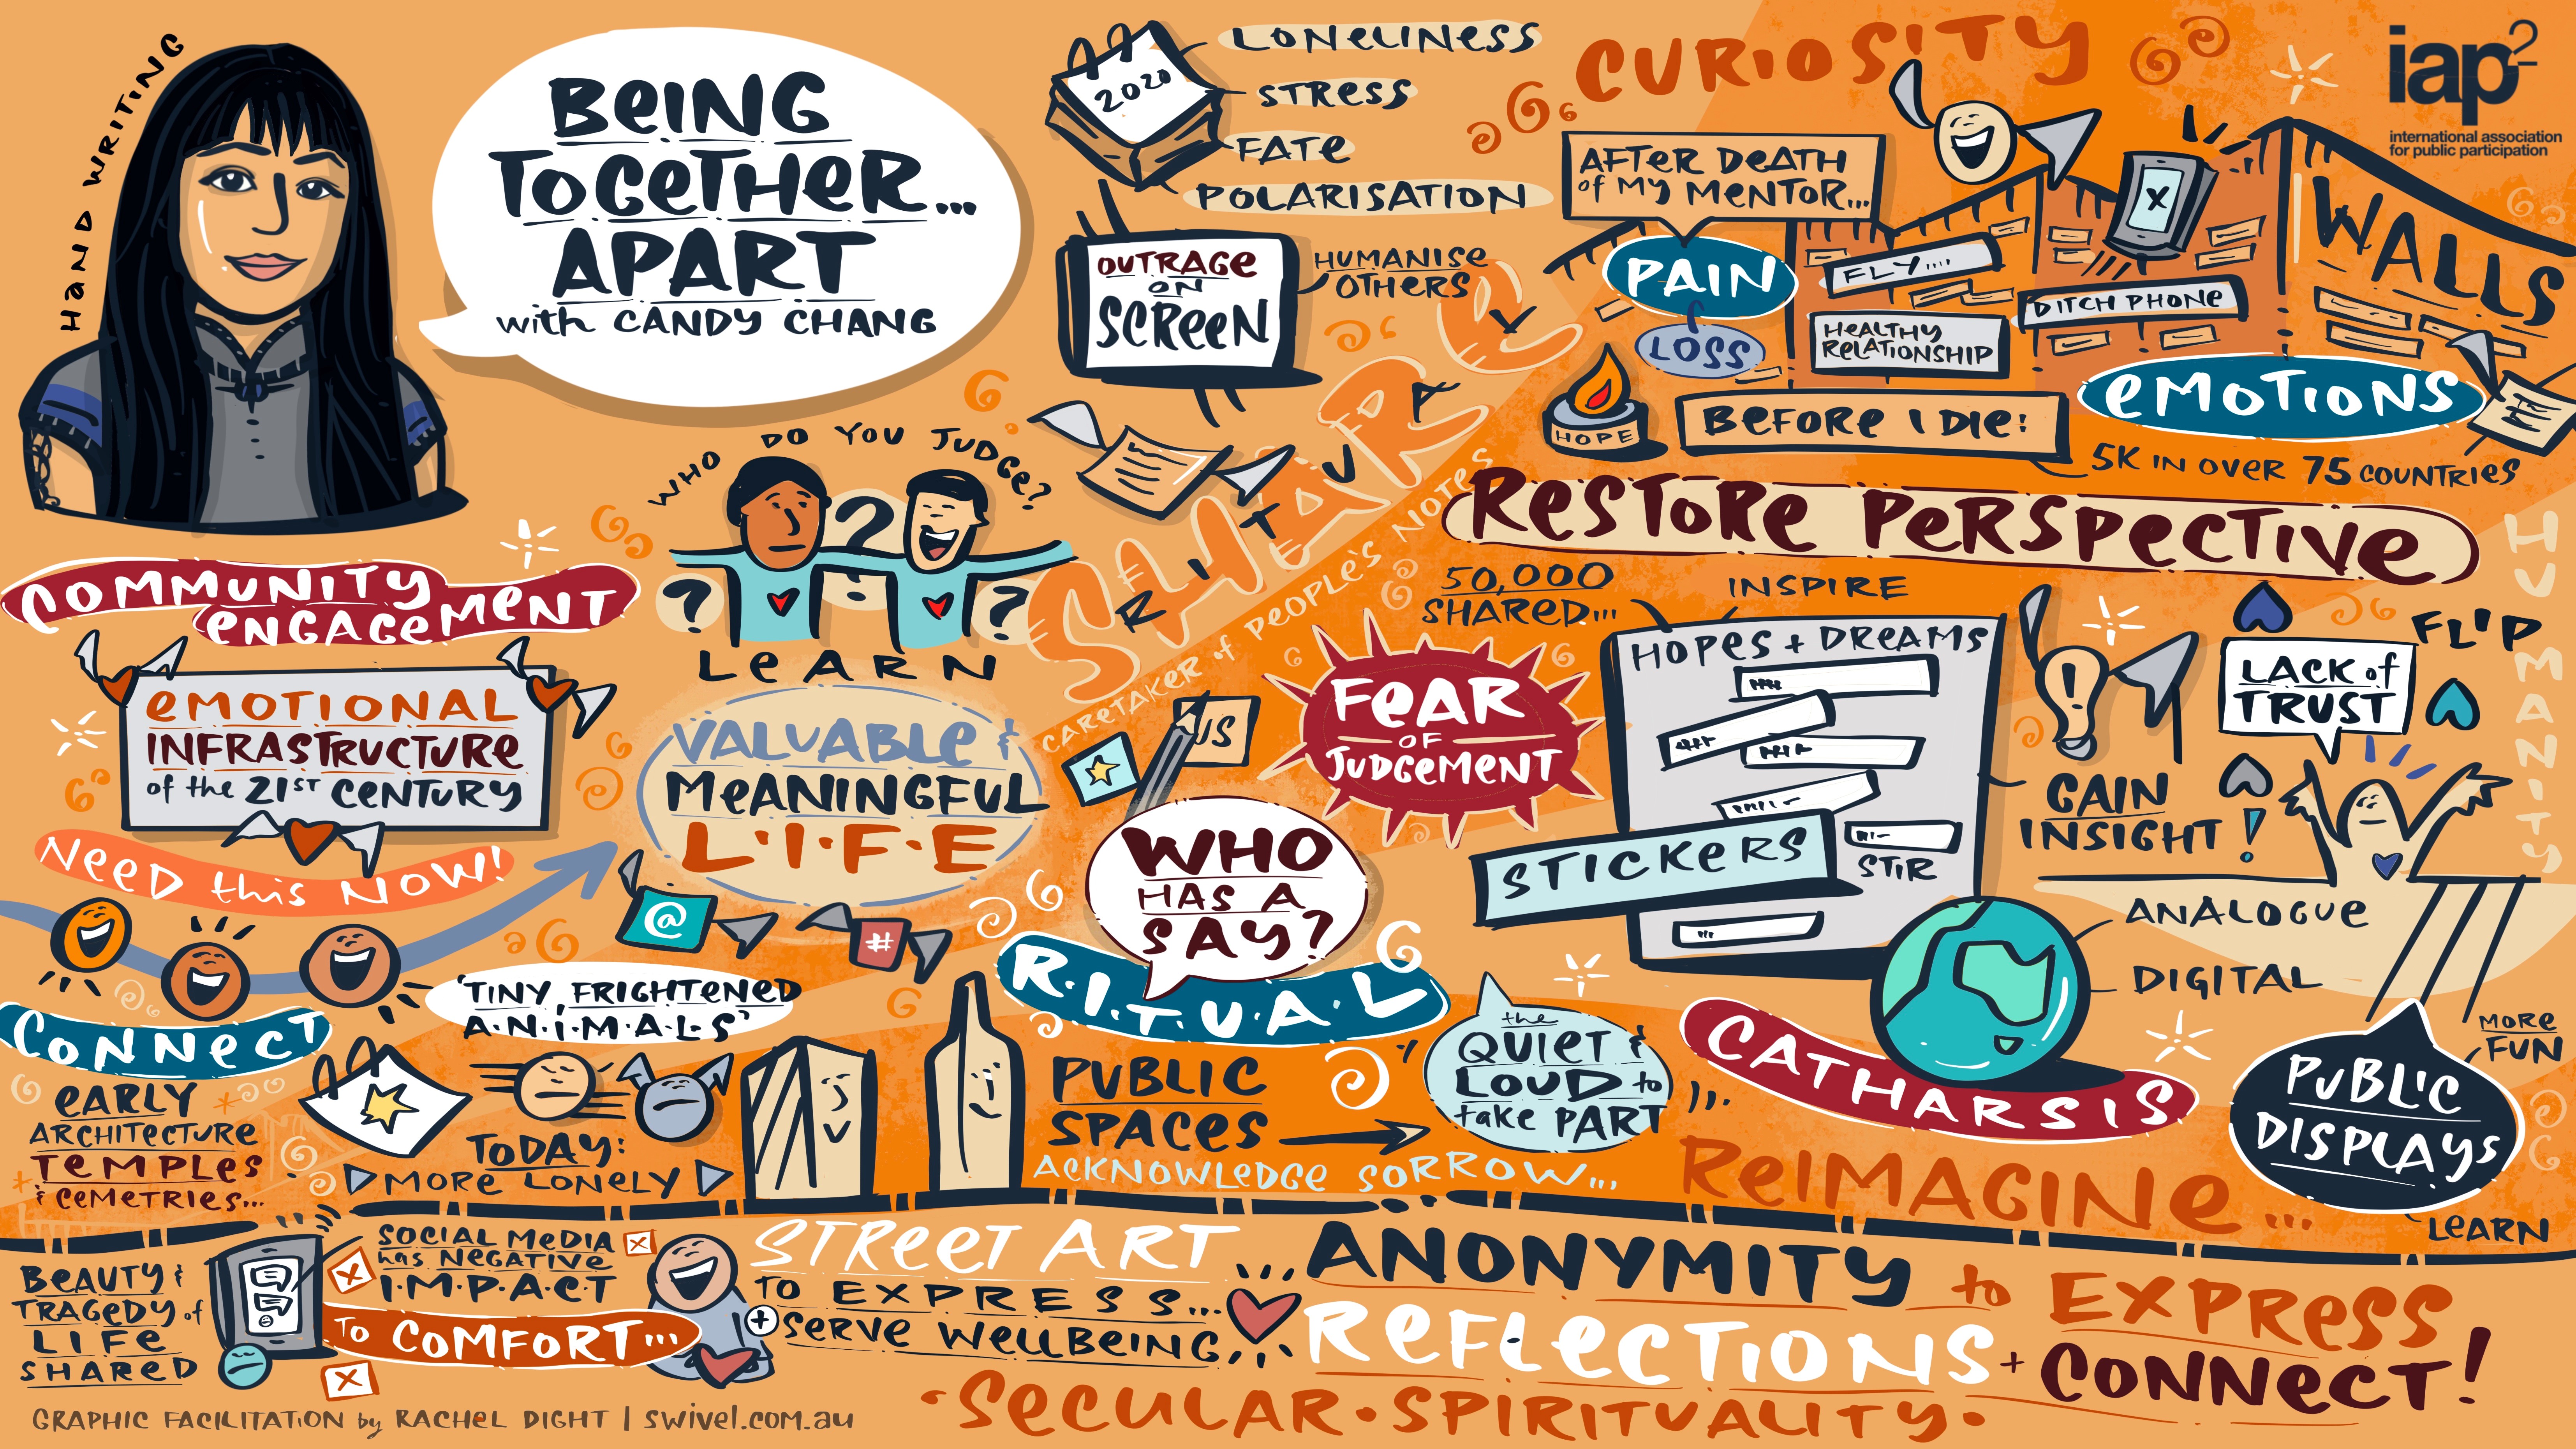 HAND WRITING
BEING
TOGETHER...
APART
with CANDY CHANG
2020
LONELINESS
STRESS
FATE
POLARISATION
OUTRAGE
ON
SCREEN
HUMANISE
OTHERS
CURIOSITY
iap2
international association
for public participation
AFTER DEATH
of MY MENTOR...
PAIN
&
LOSS
HOPE
FLY....
HEALTHY
RELATIONSHIP
X
DITCH PHONE
WALLS
BEFORE I DIE:
EMOTIONS
5K IN OVER 75 COUNTRIES
RESTORE PERSPECTIVE
SHARE
RITUAL
CARETAKER of PEOPLE'S NOTES
WHO DO YOU JUDGE?
?
? ?
LEARN
COMMUNITY
ENGAGEMENT
EMOTIONAL
INFRASTRUCTURE
of the 21ST CENTURY
NEED this NOW!
VALUABLE &
MEANINGFUL
L·I·F·E
@
#
US
FEAR
OF
JUDGEMENT
WHO
HAS A
SAY?
R·I·T·U·A·L
50,000
SHARED...
INSPIRE
HOPES + DREAMS
STICKERS
STIR
!
GAIN
INSIGHT!
LACK of
TRUST
FLIP
HUMANITY
ANALOGUE
DIGITAL
CATHARSIS
MORE
FUN
PUBLIC
DISPLAYS
LEARN
CONNECT
EARLY
ARCHITECTURE
TEMPLES
& CEMETRIES...
'TINY, FRIGHTENED
A·N·I·M·A·L·S'
TODAY:
MORE LONELY
PUBLIC
SPACES
the
QUIET &
LOUD to
take PART
ACKNOWLEDGE SORROW...
REIMAGINE...
BEAUTY &
TRAGEDY of
LIFE
SHARED
SOCIAL MEDIA
has NEGATIVE
I·M·P·A·C·T
TO COMFORT...
STREET ART
TO EXPRESS...
+ SERVE WELLBEING
ANONYMITY to EXPRESS
REFLECTIONS + CONNECT!
·SECULAR·SPIRITUALITY·
GRAPHIC FACILITATION by RACHEL DIGHT | swivel.com.au